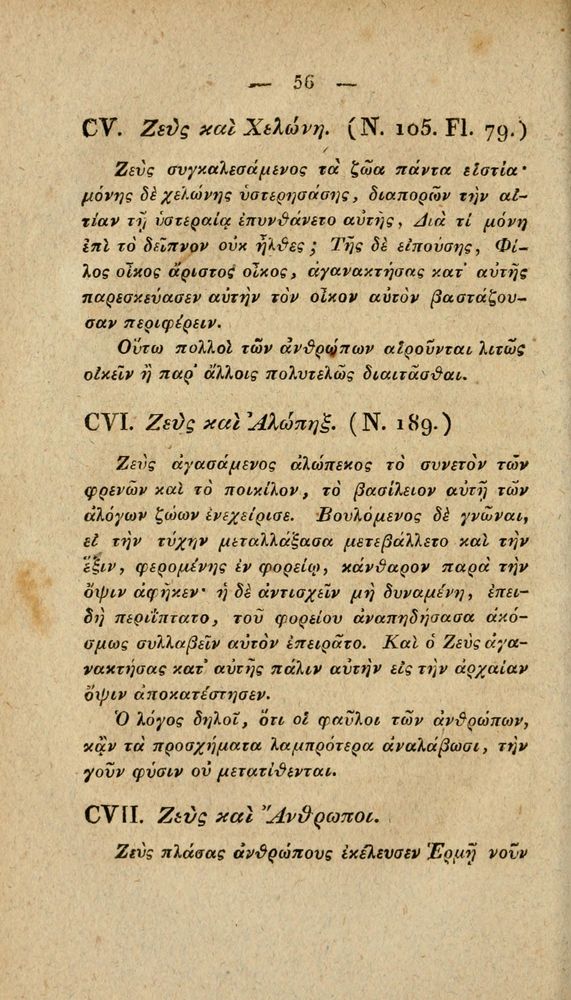 — 56 —
CV. Ζεὺς καὶ Χελώνη. (N. 105. Fl. 79.)
Ζεὺς συγκαλεσάμενος τὰ ζῶα πάντα εἱστία·
μόνης δὲ χελώνης ὑστερησάσης, διαπορῶν τὴν αἰ-
τίαν τῇ ὑστεραίᾳ ἐπυνθάνετο αὐτῆς, Διὰ τί μόνη
ἐπὶ τὸ δεῖπνον οὐκ ἦλθες; Τῆς δὲ εἰπούσης, Φί-
λος οἶκος ἄριστος οἶκος, ἀγανακτήσας κατ' αὐτῆς
παρεσκεύασεν αὐτὴν τὸν οἶκον αὐτὸν βαστάζου-
σαν περιφέρειν.
Οὕτω πολλοὶ τῶν ἀνθρώπων αἱροῦνται λιτῶς
οἰκεῖν ἢ παρ' ἄλλοις πολυτελῶς διαιτᾶσθαι.
CVI. Ζεὺς καὶ Ἀλώπηξ. (N. 189.)
Ζεὺς ἀγασάμενος ἀλώπεκος τὸ συνετὸν τῶν
φρενῶν καὶ τὸ ποικίλον, τὸ βασίλειον αὐτῇ τῶν
ἀλόγων ζώων ἐνεχείρισε. Βουλόμενος δὲ γνῶναι,
εἰ τὴν τύχην μεταλλάξασα μετεβάλλετο καὶ τὴν
ἕξιν, φερομένης ἐν φορείῳ, κάνθαρον παρὰ τὴν
ὄψιν ἀφῆκεν· ἡ δὲ ἀντισχεῖν μὴ δυναμένη, ἐπει-
δὴ περιΐπτατο, τοῦ φορείου ἀναπηδήσασα ἀκό-
σμως συλλαβεῖν αὐτὸν ἐπειρᾶτο. Καὶ ὁ Ζεὺς ἀγα-
νακτήσας κατ' αὐτῆς πάλιν αὐτὴν εἰς τὴν ἀρχαίαν
ὄψιν ἀποκατέστησεν.
Ὁ λόγος δηλοῖ, ὅτι οἱ φαῦλοι τῶν ἀνθρώπων,
κᾂν τὰ προσχήματα λαμπρότερα ἀναλάβωσι, τὴν
γοῦν φύσιν οὐ μετατίθενται.
CVII. Ζεὺς καὶ Ἄνθρωποι.
Ζεὺς πλάσας ἀνθρώπους ἐκέλευσεν Ἑρμῇ νοῦν